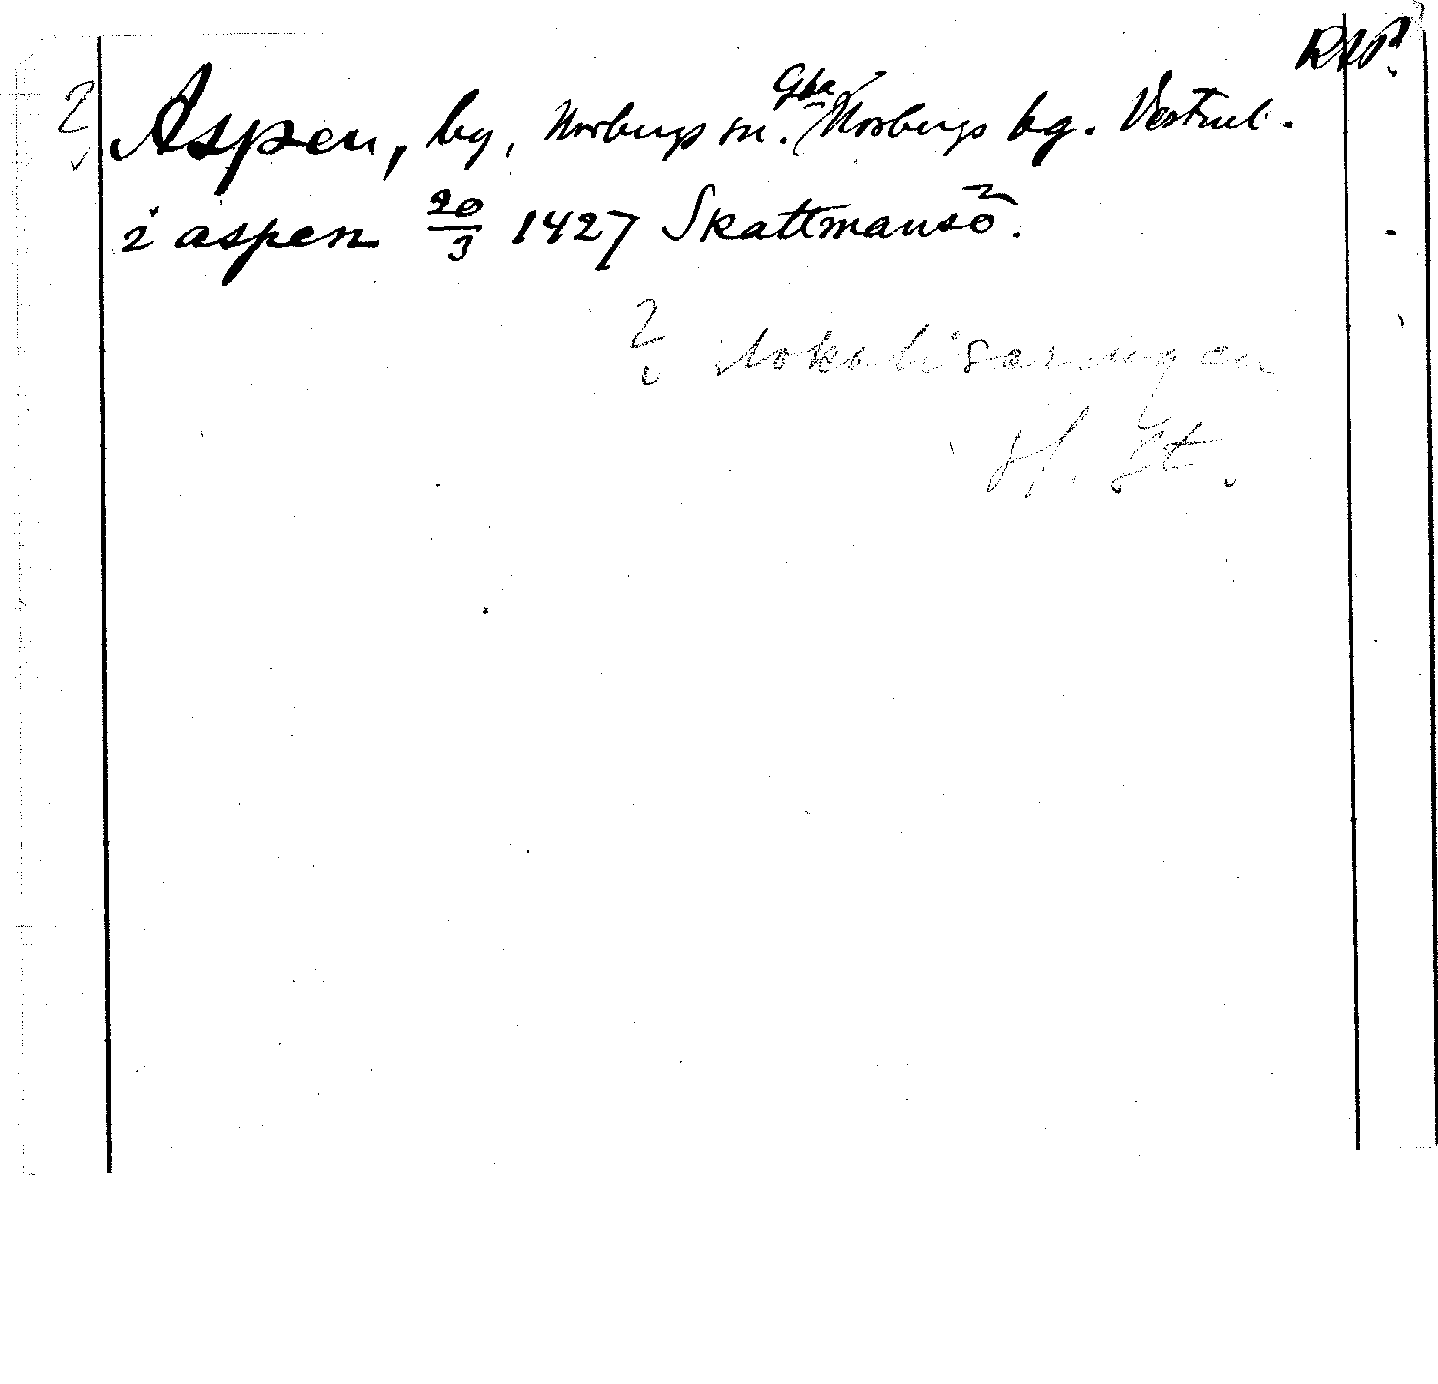 ? Aspen, by, Norbergs sn. Gla Norbergs bg. Vestml.
i aspen 20/3 1427 Skattmansö.
? lokaliseringen
H. St.